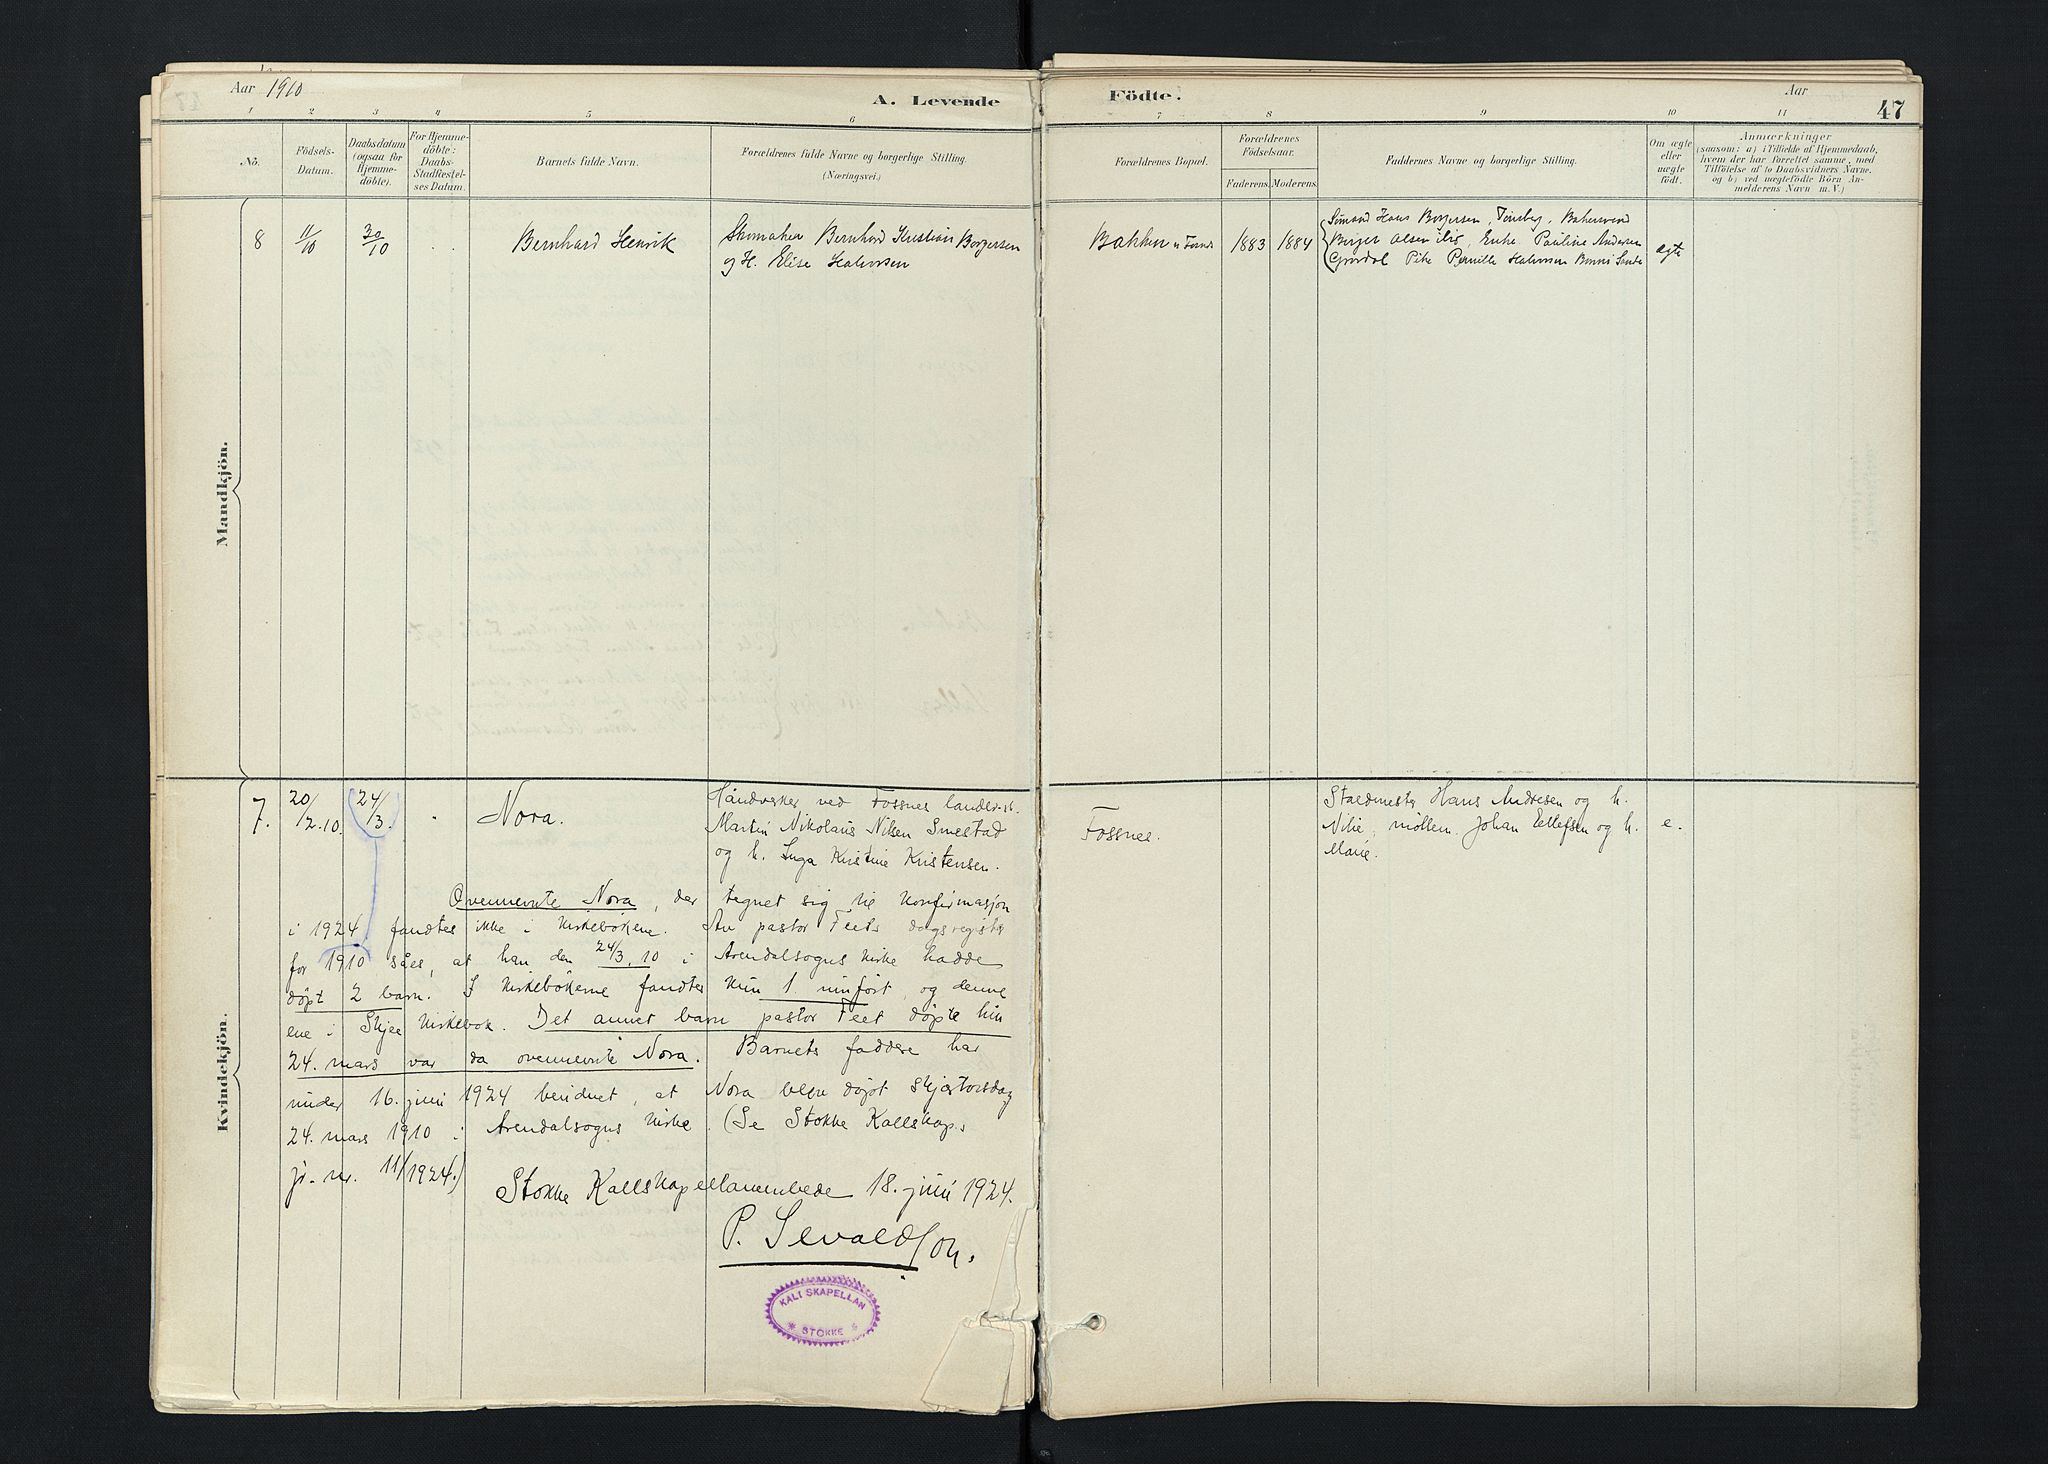 Aar 1910
A. Levende
Födte.
Aar
47
1
2
3
4
5
6
7
8
9
10
11
Nö.
Födsels-
Datum.
Daabsdatum
(ogsaa for
Hjemme-
döbte).
For Hjemme-
döbte:
Daabs-
Stadfæstel-
ses Datum.
Barnets fulde Navn.
Forældrenes fulde Navne og borgerlige Stilling.
(Næringsvei.)
Forældrenes Bopæl.
Forældrenes
Födselsaar.
Faderens.
Moderens.
Faddernes Navne og borgerlige Stilling.
Om ægte
eller
uægte
födt.
Anmærkninger
(saasom: a) i Tilfælde af Hjemmedaab,
hvem der har forrettet samme, med
Tilföielse af to Daabsvidners Navne.
og b) ved uægtefödte Börn An-
melderens Navn m. V.)
Mandkjön.
8
11/10
30/10
Bernhard Henrik
Skomaker Bernhard Kristian Borgersen
og H. Elise Halvorsen
Bakken u Fossnes
1883
1884
Sömand Hans Borgersen, Tönsberg,
Borger Olsen ibid, Enke Pauline Andersen
Pike Pernille Halvorsen Sande
ægte
Kvindekjön.
7.
20/2.10.
24/3.
Nora.
Håndverker ved Fossnes
Martin Nikolaus Nilsen Smestad
og h. Inga Kristine Kristensen.
Fossnes.
Staldmester Hans Andresen og h.
møllem. Johan Ellefsen og h.
Marie.
e.
Ovennevnte Nora, der tegnet sig til konfirmasjon
i 1924 fandtes ikke i kirkebökene. Av pastor Feets dagsregister
for 1910 såes, at han den 24/3.10 i Arendalsogns kirke hadde
döpt 2 barn. I kirkebökerne fandtes kun 1. innfört, og denne
ene i Skjee kirkebok. Det annet barn pastor Feet döpte hin
24. mars var da ovennevnte Nora. Barnets faddere har
under 16. juni 1924 bevidnet, at Nora blev döpt skjærtorsdag
24. mars 1910 i Arendalsogns kirke. (Se Stokke Kallskap.
jr. nr. 11/1924.)
Stokke Kallskapellanembede 18. juni 1924.
P. Sevaldson.
KALLSKAPELLAN
* STOKKE *